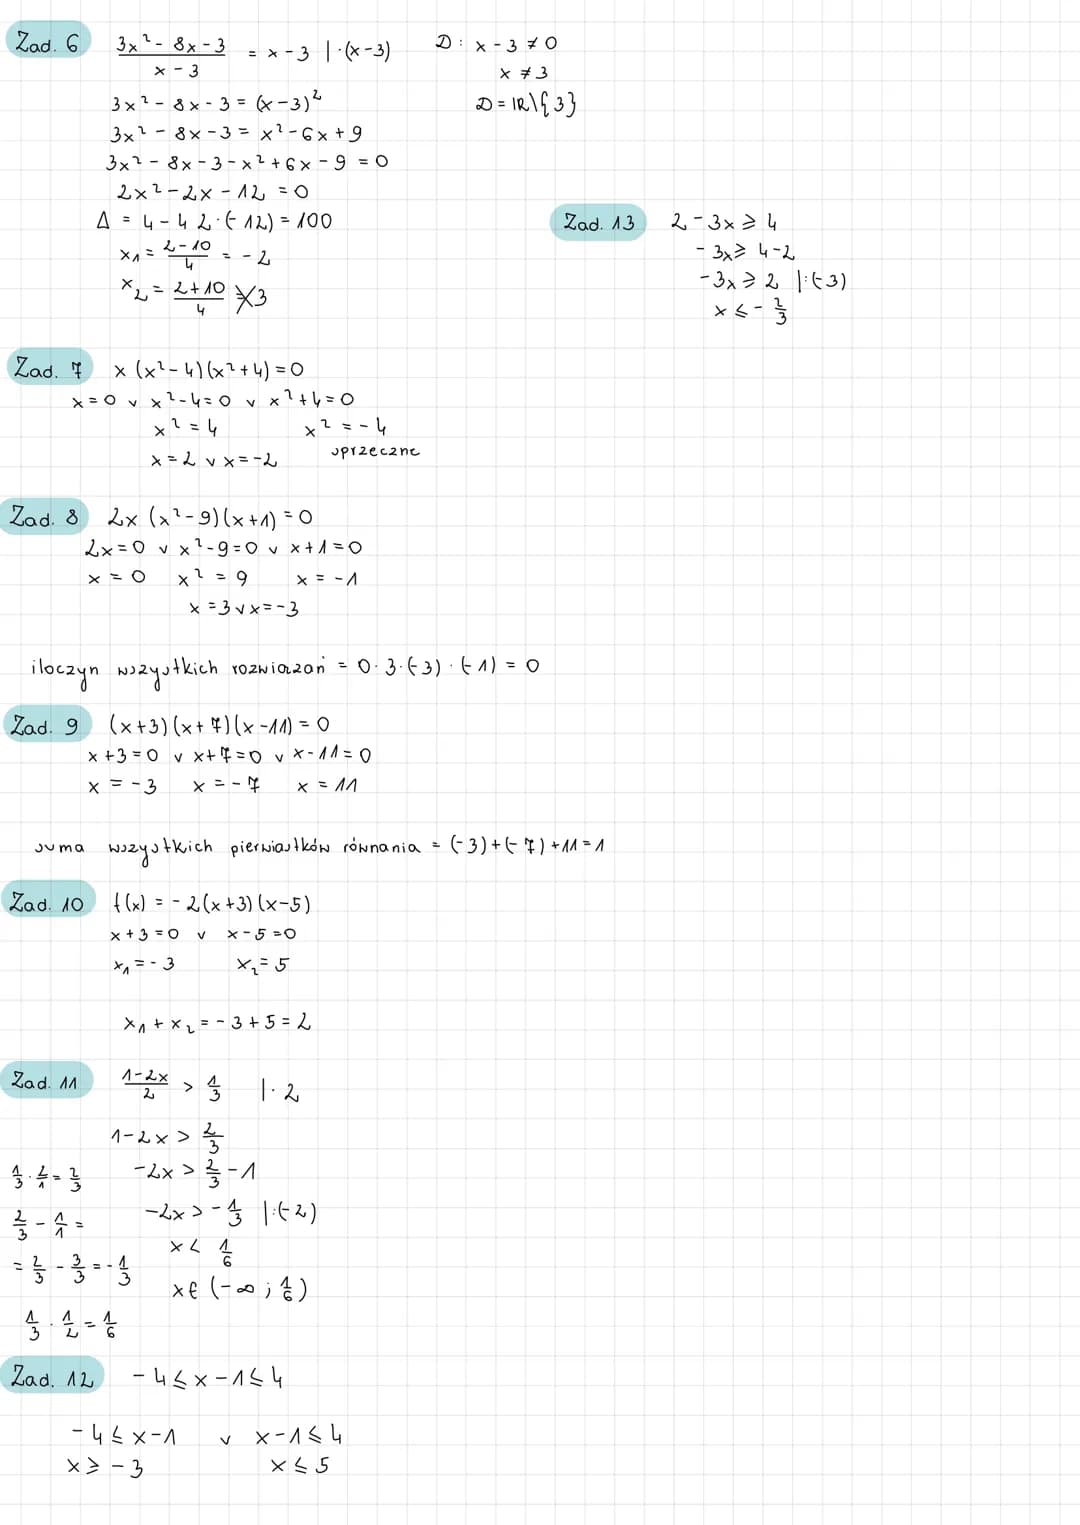 Zad. 6 (3x² - 8x - 3)/(x - 3) = x - 3 | ·(x-3) D: x - 3 ≠ 0
x ≠ 3
3x² - 8x - 3 = (x-3)² D = IR\{3}
3x² - 8x - 3 = x² - 6x + 9
3x² - 8x - 3 - x² + 6x - 9 = 0
2x² - 2x - 12 = 0
Δ = 4 - 4 2·(-12) = 100
x₁ = (2-10)/4 = -2
x₂ = (2+10)/4 ≠ 3
Zad. 13 2 - 3x ⩾ 4
-3x ⩾ 4-2
-3x ⩾ 2 | :(-3)
x ⩽ -2/3
Zad. 7 x (x² - 4)(x² + 4) = 0
x = 0 v x² - 4 = 0 v x² + 4 = 0
x² = 4 x² = -4
x = 2 v x = -2 sprzeczne
Zad. 8 2x (x² - 9)(x + 1) = 0
2x = 0 v x² - 9 = 0 v x + 1 = 0
x = 0 x² = 9 x = -1
x = 3 v x = -3
iloczyn wszystkich rozwiązań = 0·3·(-3)·(-1) = 0
Zad. 9 (x+3)(x+7)(x-11) = 0
x + 3 = 0 v x + 7 = 0 v x - 11 = 0
x = -3 x = -7 x = 11
suma wszystkich pierwiastków równania = (-3)+(-7)+11 = 1
Zad. 10 f(x) = -2(x+3)(x-5)
x + 3 = 0 v x - 5 = 0
x₁ = -3 x₂ = 5
x₁ + x₂ = -3 + 5 = 2
Zad. 11 (1-2x)/2 > 1/3 | · 2
1 - 2x > 2/3
1/3 · 2/1 = 2/3 -2x > 2/3 - 1
2/3 - 1/1 = -2x > -1/3 | :(-2)
x < 1/6
= 2/3 - 3/3 = -1/3 x ∈ (-∞ ; 1/6)
1/3 · 1/2 = 1/6
Zad. 12 -4 ⩽ x - 1 ⩽ 4
-4 ⩽ x - 1 v x - 1 ⩽ 4
x ⩾ -3 x ⩽ 5